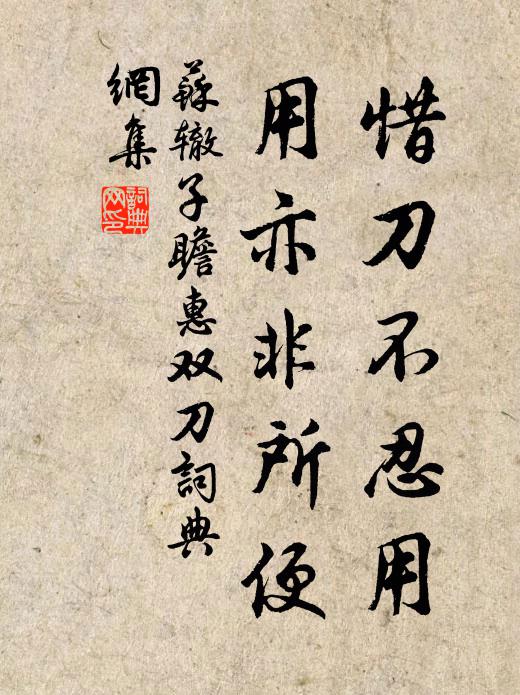 惜刀不忍用
用亦非所便
蘇辙子瞻惠双刀詞典
網集
詞典
网印